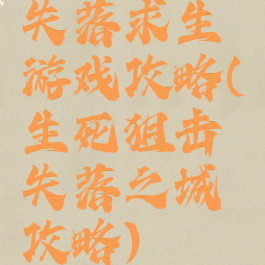 失落求生
游戏攻略(
生死狙击
失落之城
攻略)